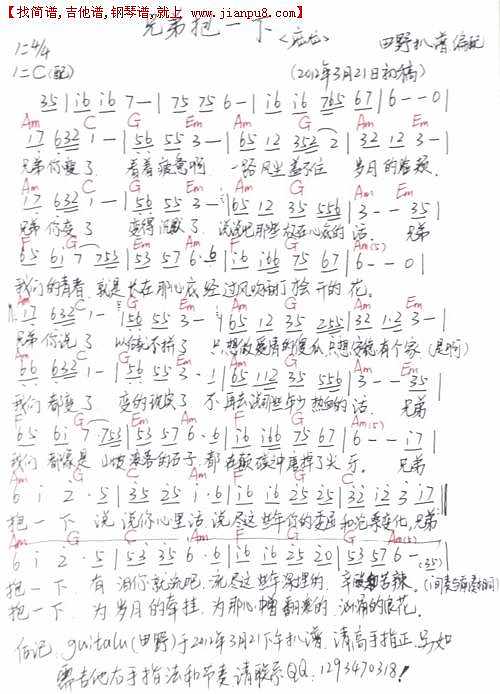 【找简谱,吉他谱,钢琴谱,就上 www.jianpu8.com】
兄弟抱一下 <庞龙> 田野扒谱编配
1=4/4
1=C(配) (2012年3月21日初稿)
35 | i6 i6 7 - | 75 75 6 - | i6 i6 765 67 | 6 - - 0 |
Am C G Em Am G Em
17 632 1 - | 56 55 3 - | 65 12 352 2 | 32 12 3 - |
兄弟你瘦了 看着疲惫啊 一路风尘盖不住 岁月的脸颊
Am C G Em Am G Em
17 632 1 - | 56 55 3 - | 65 12 35 556 | 3 - - 35 |
兄弟你变了 变得沉默了 说说吧那些放在心底的话 兄弟
F G Em Am G Am(5)
65 61 7 753 | 53 57 6 · 6 | i6 i66 75 67 | 6 - - 0 |
我们的青春 就是长在那心底 经过风吹雨打才会开的花
Am C G Em Am G Em
17 632 1 - | 56 55 3 - | 65 12 35 255 | 32 12 3 - |
兄弟你说了 以后就不拼了 只想做爱情的傻瓜 只想安稳有个家 (是啊)
Am C G Em Am G Em
17 632 1 - | 56 55 3 · 1 | 65 12 35 556 | 3 - - 35 |
我们都变了 变的现实了 不再去说那些年少热血的话 兄弟
F G Em Am G Am(5)
65 61 7 753 | 53 57 6 · 6 | i6 i66 75 67 | 6 - - i7 |
我们都像是 山坡滚落的石子 都在颠簸之中磨掉了尖牙 兄弟
F G C Am G C
6 i 2 · 5 | 35 25 i · 6 | i6 i6 25 25 | 32 i2 3 i7
抱一下 说说你心里话 说尽这些年你的委屈和沧桑变化 兄弟
Am G C F G Am
6 i 2 · 5 | 53 35 6 · 6 | i6 i6 25 20 | 53 57 6 - (35)
抱一下 有泪你就流吧 流尽这些年深埋的 辛酸和苦辣 (间奏与前奏相同)
抱一下 为岁月的牵挂 为那心中翻滚的 汹涌的浪花
后记: guitalu (田野)于2012年3月21下午扒谱 请高手指正 另如
需吉他右手指法和节奏请联系QQ: 1293470318!